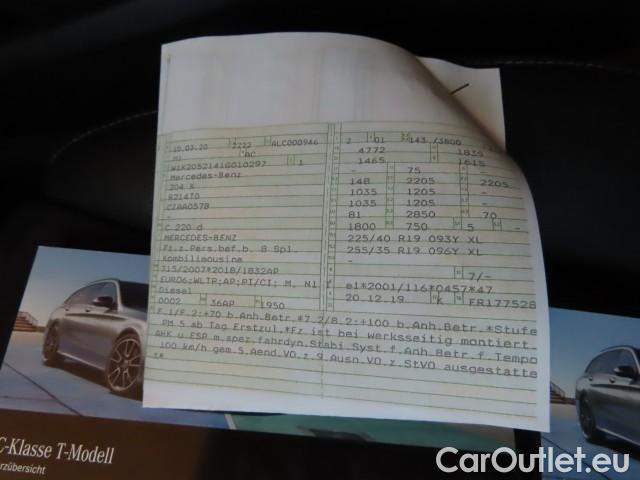 10.03.20 2222 ALC000946 2 01 143 /3800
M1 AC 4772 1839
W1K2052141G010297 1 1465 1615
Mercedes-Benz - 75 -
204 K 148 2205 2205
R2T4T0 1035 1205 -
CZAA057B 1035 1205 -
- 81 2850 70
C 220 d 1800 750 5 -
MERCEDES-BENZ 225/40 R19 093Y XL
Fz.z.Pers.bef.b. 8 Spl. 255/35 R19 096Y XL
Kombilimousine -
715/2007*2018/1832AP 7/-
EURO6;WLTP;AP;PI/CI; M, N1 I e1*2001/116*0457*47
Diesel 20.12.19 K FR177528
0002 36AP 1950
F.1/F.2:+70 b.Anh.Betr.*7.2/8.2:+100 b.Anh.Betr.*Stufe
PM 5 ab Tag Erstzul.*Fz ist bei werksseitig montiert.
AHK u.ESP m.spez.fahrdyn.Stabi.Syst.f.Anh.Betr.f.Tempo
100 km/h gem.5.Aend.VO.z.9.Ausn.VO.z.StVO ausgestatte
t*
C-Klasse T-Modell
rzübersicht
CarOutlet.eu